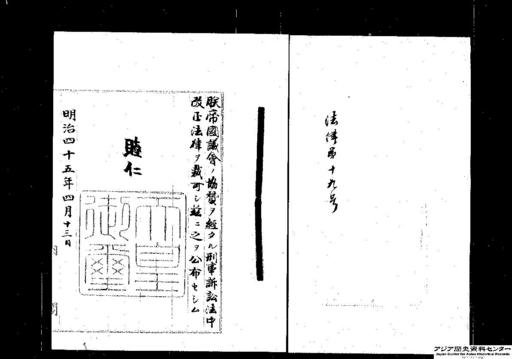 法律第十九号
朕帝國議會ノ協賛ヲ經タル刑事訴訟法中
改正法律ヲ裁可シ茲ニ之ヲ公布セシム
睦仁
天皇
御璽
明治四十五年四月十三日
内閣
アジア歴史資料センター
Japan Center for Asian Historical Records